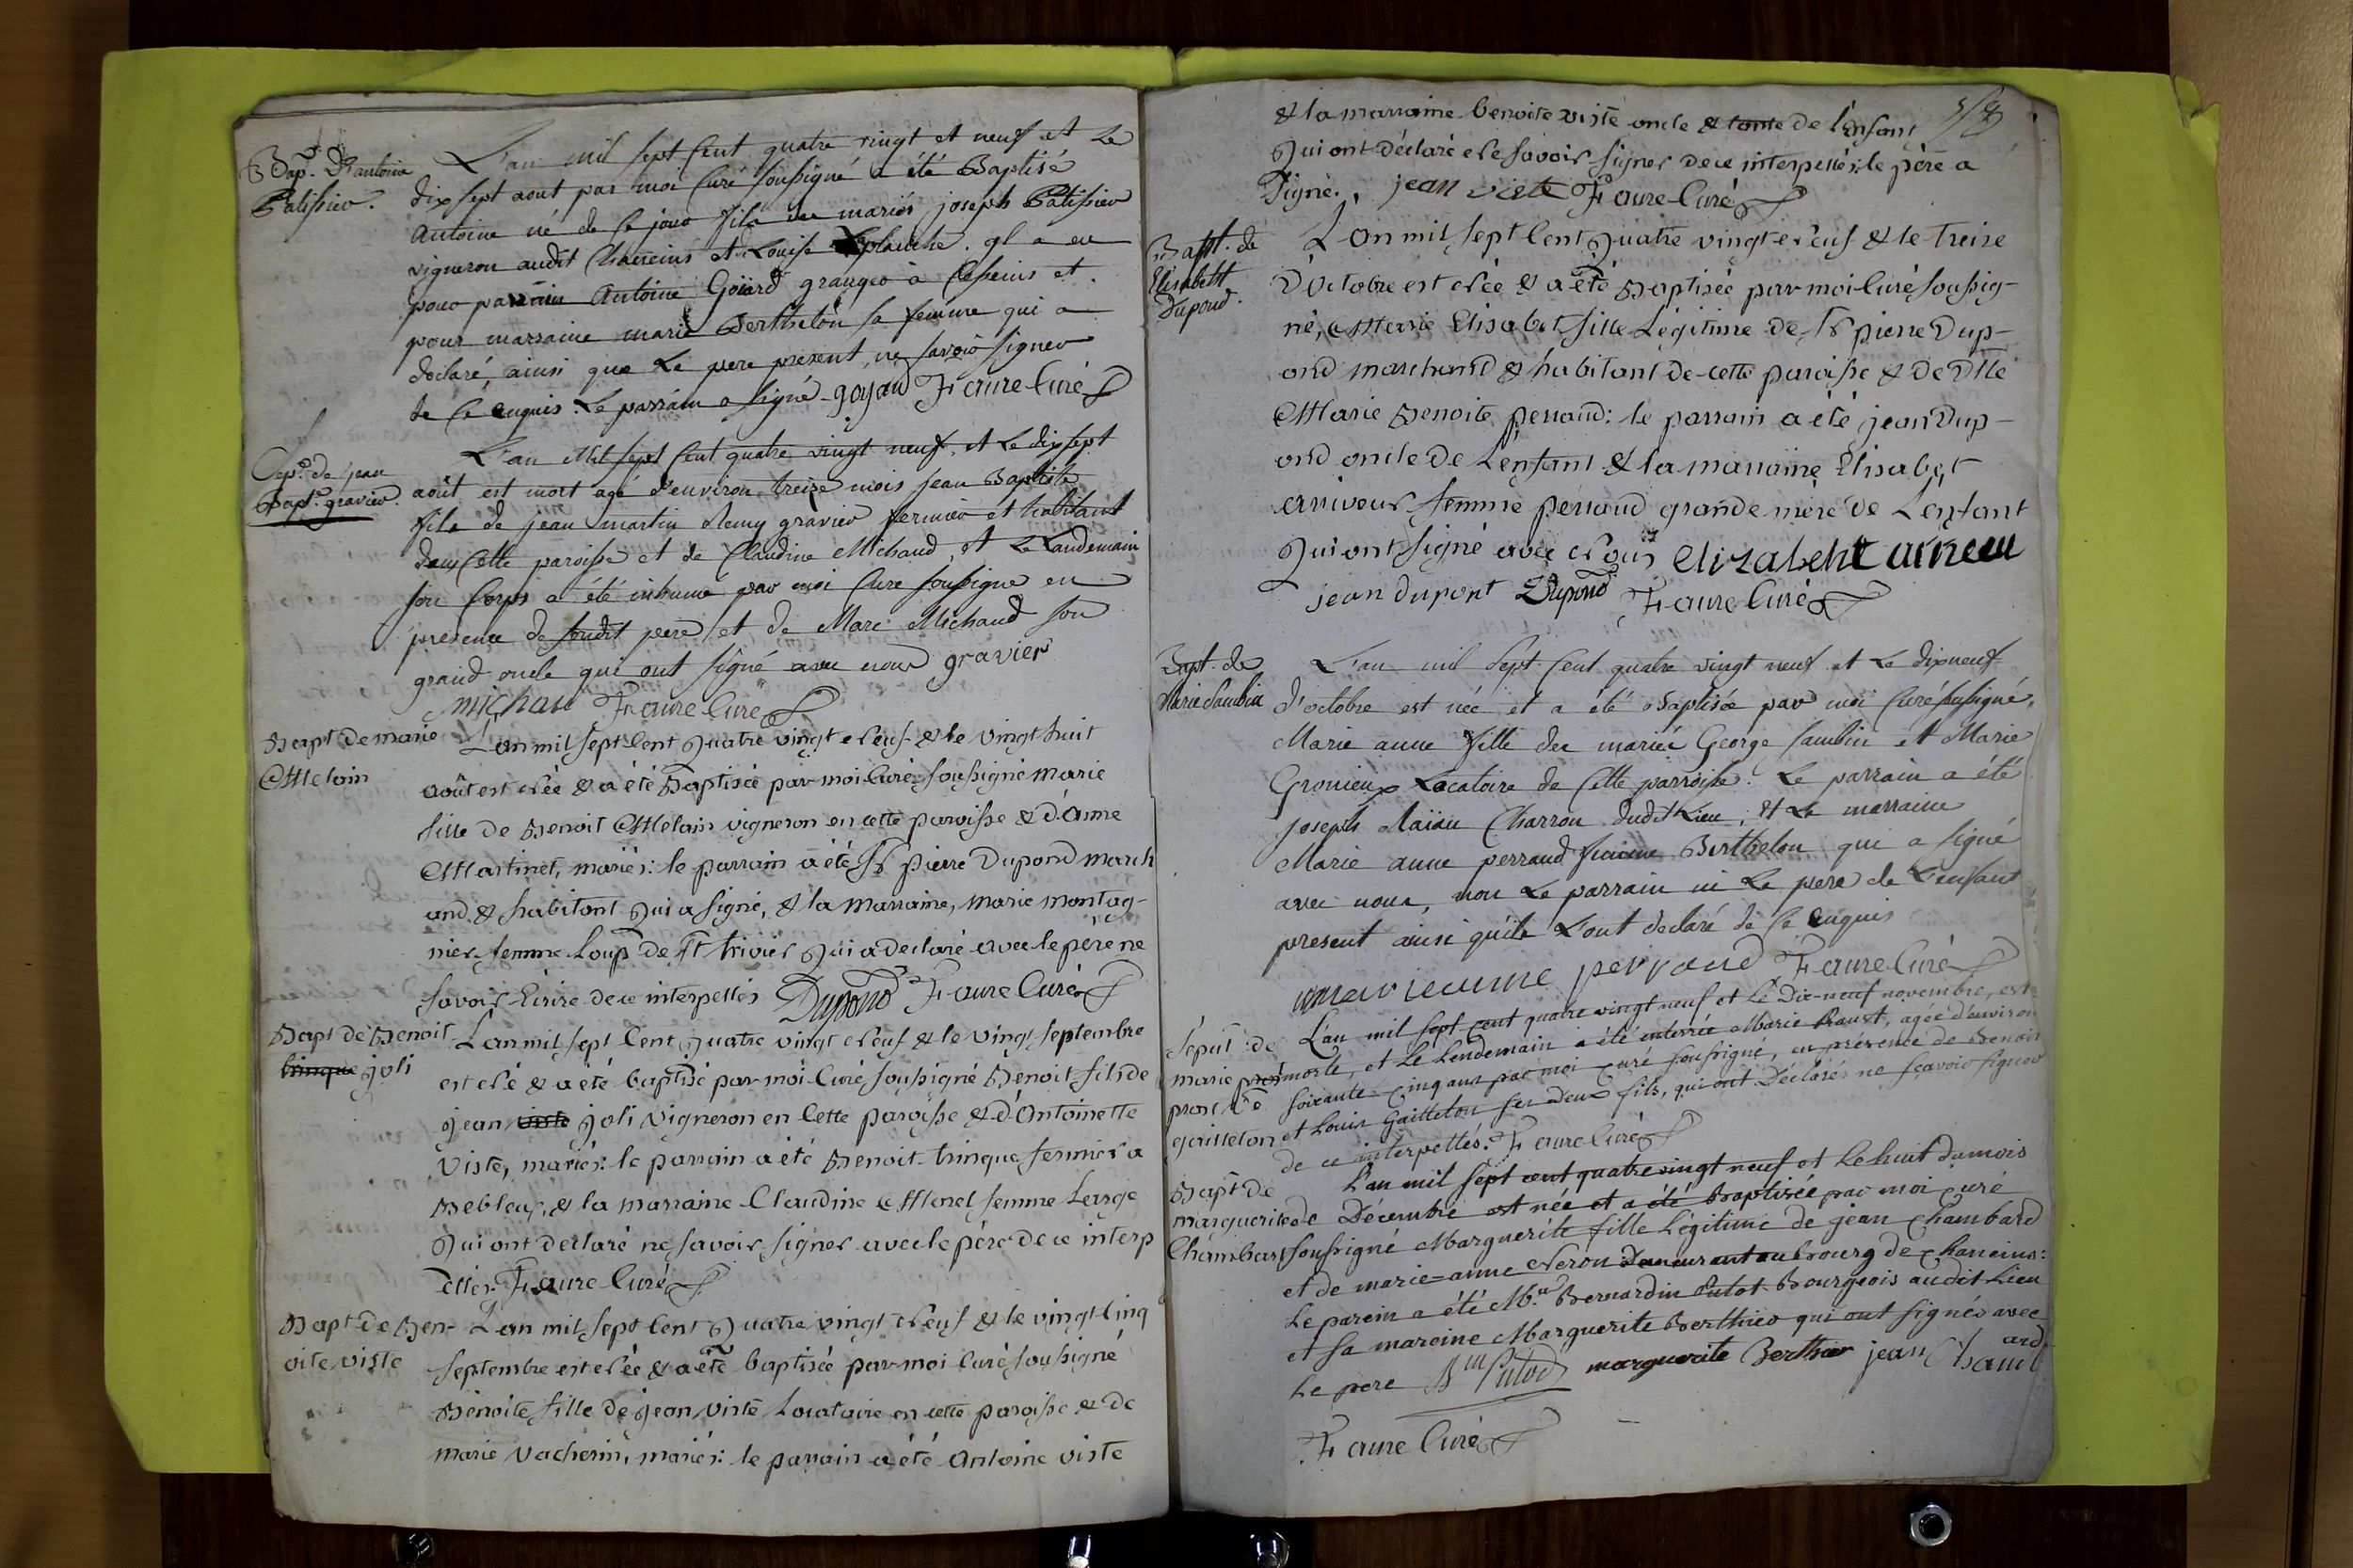 Bap. D'antoine
Patissier.
L'an mil sept Cent quatre vingt et neuf et Le
dix sept aout par moi Curé soussigné a été Baptisé
antoine né de ce jour fils des mariés joseph Patissier
vigneron audit Chaneins et Louise Laplanche. jl a eu
pour parrain Antoine Goiard granger à Cesseins et
pour marraine marie Berthelon sa femme qui a
declaré, ainsi que Le pere present, ne savoir signer
de ce enquis. Le parrain a signé goyard Faure Curé
Sep. de jean
Bapt. gravier.
L'an Mil sept Cent quatre vingt neuf, et Le dix sept
août est mort agé d'environ treize mois jean Baptiste
fils de jean martin Remy gravier fermier et habitant
dans Cette paroisse et de Claudine Michaud, et Le Landemain
son Corps a été inhumé par moi Curé soussigné en
presence de sondit pere et de Marc Michaud son
grand oncle qui ont signé avec nous gravier
michau Faure Curé
Bapt de marie
Melain
L'an mil sept Cent Quatre vingt Neuf & le vingt huit
août est Née & a été Baptisée par moi Curé soussigné marie
fille de Benoit Melain vigneron en cette paroisse & d'anne
Martinet, mariés: le parrain a été Sr pierre Dupond march
and & habitant Qui a signé, & la marraine, marie montag-
nier femme Loup de St trivier Qui a declaré avec le père ne
savoir Ecrire de ce interpellés Dupond Faure Curé
Bapt de Benoit
trinque joli
L'an mil sept Cent Quatre vingt Neuf & le vingt septembre
est Né & a été baptisé par moi Curé soussigné Benoit fils de
jean viste joli vigneron en Cette paroisse & d'Antoinette
viste, mariés: le parrain a été Benoit trinque fermier a
Bebleu, & la marraine Claudine Morel femme Lerge
Qui ont declaré ne savoir signer avec le père de ce interp
ellés. Faure Curé
Bapt de Ben-
oite viste
L'an mil sept Cent Quatre vingt Neuf & le vingt Cinq
septembre est Née & a été baptisée par moi Curé soussigné
Benoite, fille de jean viste Locataire en cette paroisse & de
marie vacherin, mariés: le parrain a été Antoine viste
& la marraine benoite viste oncle & tante de l'enfant
Qui ont déclaré ne savoir signer de ce interpellés: le père a
signé. jean viste Faure Curé
Bapt. de
Elisabeth
Dupond.
L'an mil sept Cent Quatre vingt Neuf & le treize
D'Octobre est Née & a été Baptisée par moi Curé soussig-
né, Marie Elisabet fille Légitime de Sr pierre Dup-
ond marchand & habitant de cette paroisse & de Dlle
Marie Benoite perraud: le parrain a été jean Dup-
ond oncle de L'enfant & la marraine Elisabet
arniveur femme perraud grande mère de L'enfant
Qui ont signé avec Nous elizabeht arneu
jean dupont Dupond Faure Curé
Bapt. de
Marie Sambin
L'an mil Sept Cent quatre vingt neuf et Le dixneuf
d'octobre est née et a été Baptisée par moi Curé soussigné,
Marie anne fille des mariés George Sambin et Marie
Gronieux Locataire de Cette parroisse. Le parrain a été
joseph Charron dudit Lieu, et La marraine
Marie anne perraud femme Berthelon qui a signé
avec nous, non Le parrain ni Le pere de L'enfant
present ainsi qu'ils L'ont declaré de ce enquis
marieanne perraud Faure Curé
Sépul. de
marie
prost
gaitteton
L'an mil sept cent quatre vingt neuf et Le Dix-neuf novembre, est
morte, et Le Lendemain a été enterrée Marie Proust, agée d'environ
soixante Cinq ans par moi curé soussigné, en présence de Benoit
et Louis Gaitteton ses deux fils, qui ont Déclarés ne sçavoir signer
de ce interpellés. Faure Curé
Bapt de
marguerite
Chambard
L'an mil sept cent quatre vingt neuf et Le huit du mois
de Décembre est née et a été Baptisée par moi curé
soussigné Marguerite fille Légitime de jean Chambard
et de marie-anne Neron Demeurant au bourg de Chaneins:
Le parein a été Mr. Bernardin Putot Bourgeois audit Lieu
et sa mareine Marguerite Berthier qui ont signés avec
Le pere Bin Putod marguerite Berthier jean Chambard
Faure Curé